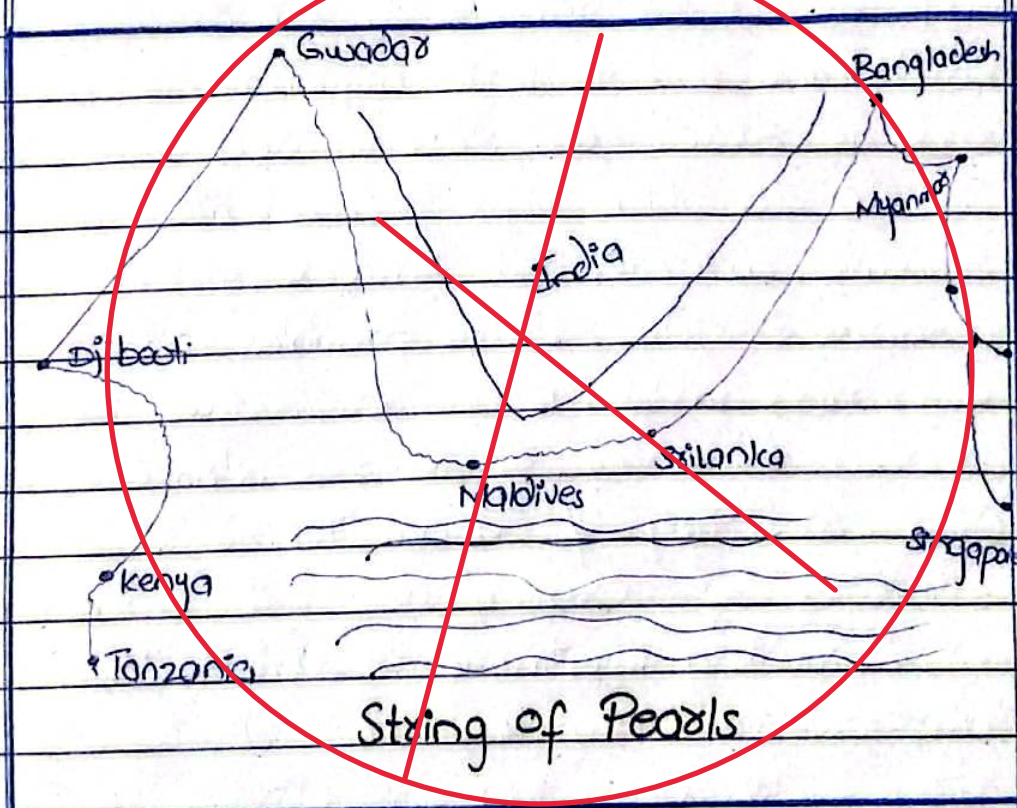 Gwadar
Bangladesh
Myanmar
India
Djibouti
Srilanka
Maldives
Singapor
Kenya
Tanzania
String of Pearls